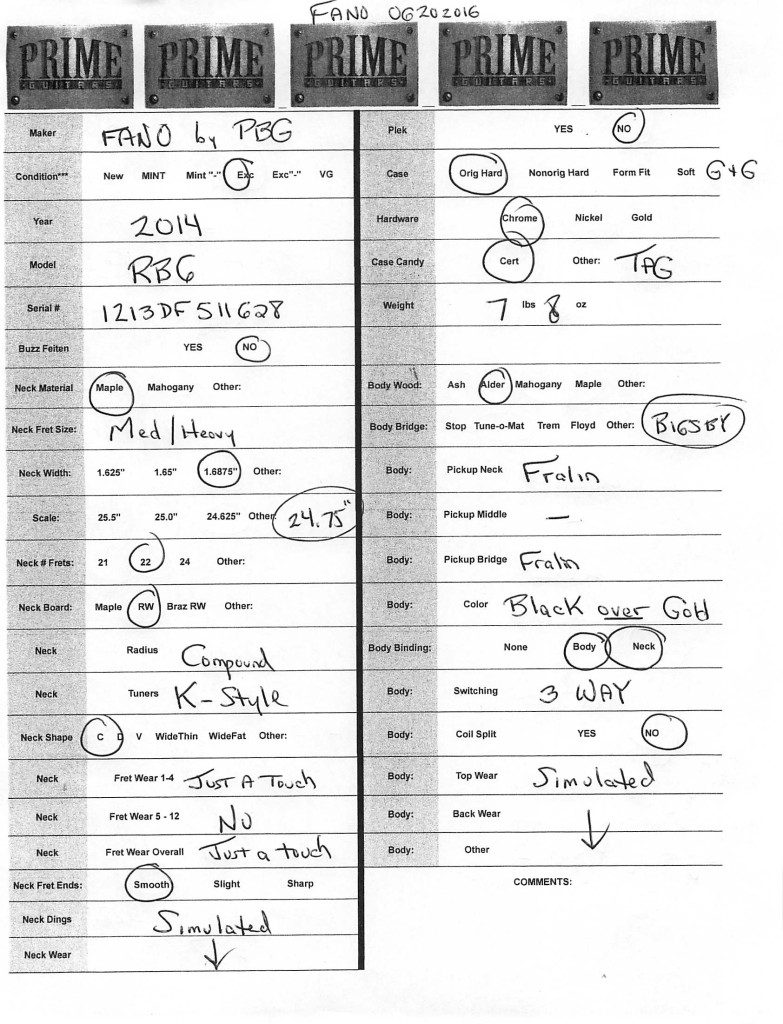 FANO 06202016
PRIME GUITARS PRIME GUITARS PRIME GUITARS PRIME GUITARS PRIME GUITARS
Maker FANO by PBG
Condition*** New MINT Mint "-" Exc Exc"-" VG
Year 2014
Model RB6
Serial # 1213DF511628
Buzz Feiten YES NO
Neck Material Maple Mahogany Other:
Neck Fret Size: Med/Heavy
Neck Width: 1.625" 1.65" 1.6875" Other:
Scale: 25.5" 25.0" 24.625" Other: 24.75"
Neck # Frets: 21 22 24 Other:
Neck Board: Maple RW Braz RW Other:
Neck Radius Compound
Neck Tuners K-Style
Neck Shape C D V WideThin WideFat Other:
Neck Fret Wear 1-4 Just A Touch
Neck Fret Wear 5 - 12 No
Neck Fret Wear Overall Just a touch
Neck Fret Ends: Smooth Slight Sharp
Neck Dings Simulated
Neck Wear ↓
Plek YES NO
Case Orig Hard Nonorig Hard Form Fit Soft G+G
Hardware Chrome Nickel Gold
Case Candy Cert Other: TAG
Weight 7 lbs 8 oz
Body Wood: Ash Alder Mahogany Maple Other:
Body Bridge: Stop Tune-o-Mat Trem Floyd Other: BIGSBY
Body: Pickup Neck Fralin
Body: Pickup Middle —
Body: Pickup Bridge Fralin
Body: Color Black over Gold
Body Binding: None Body Neck
Body: Switching 3 WAY
Body: Coil Split YES NO
Body: Top Wear Simulated
Body: Back Wear ↓
Body: Other
COMMENTS: